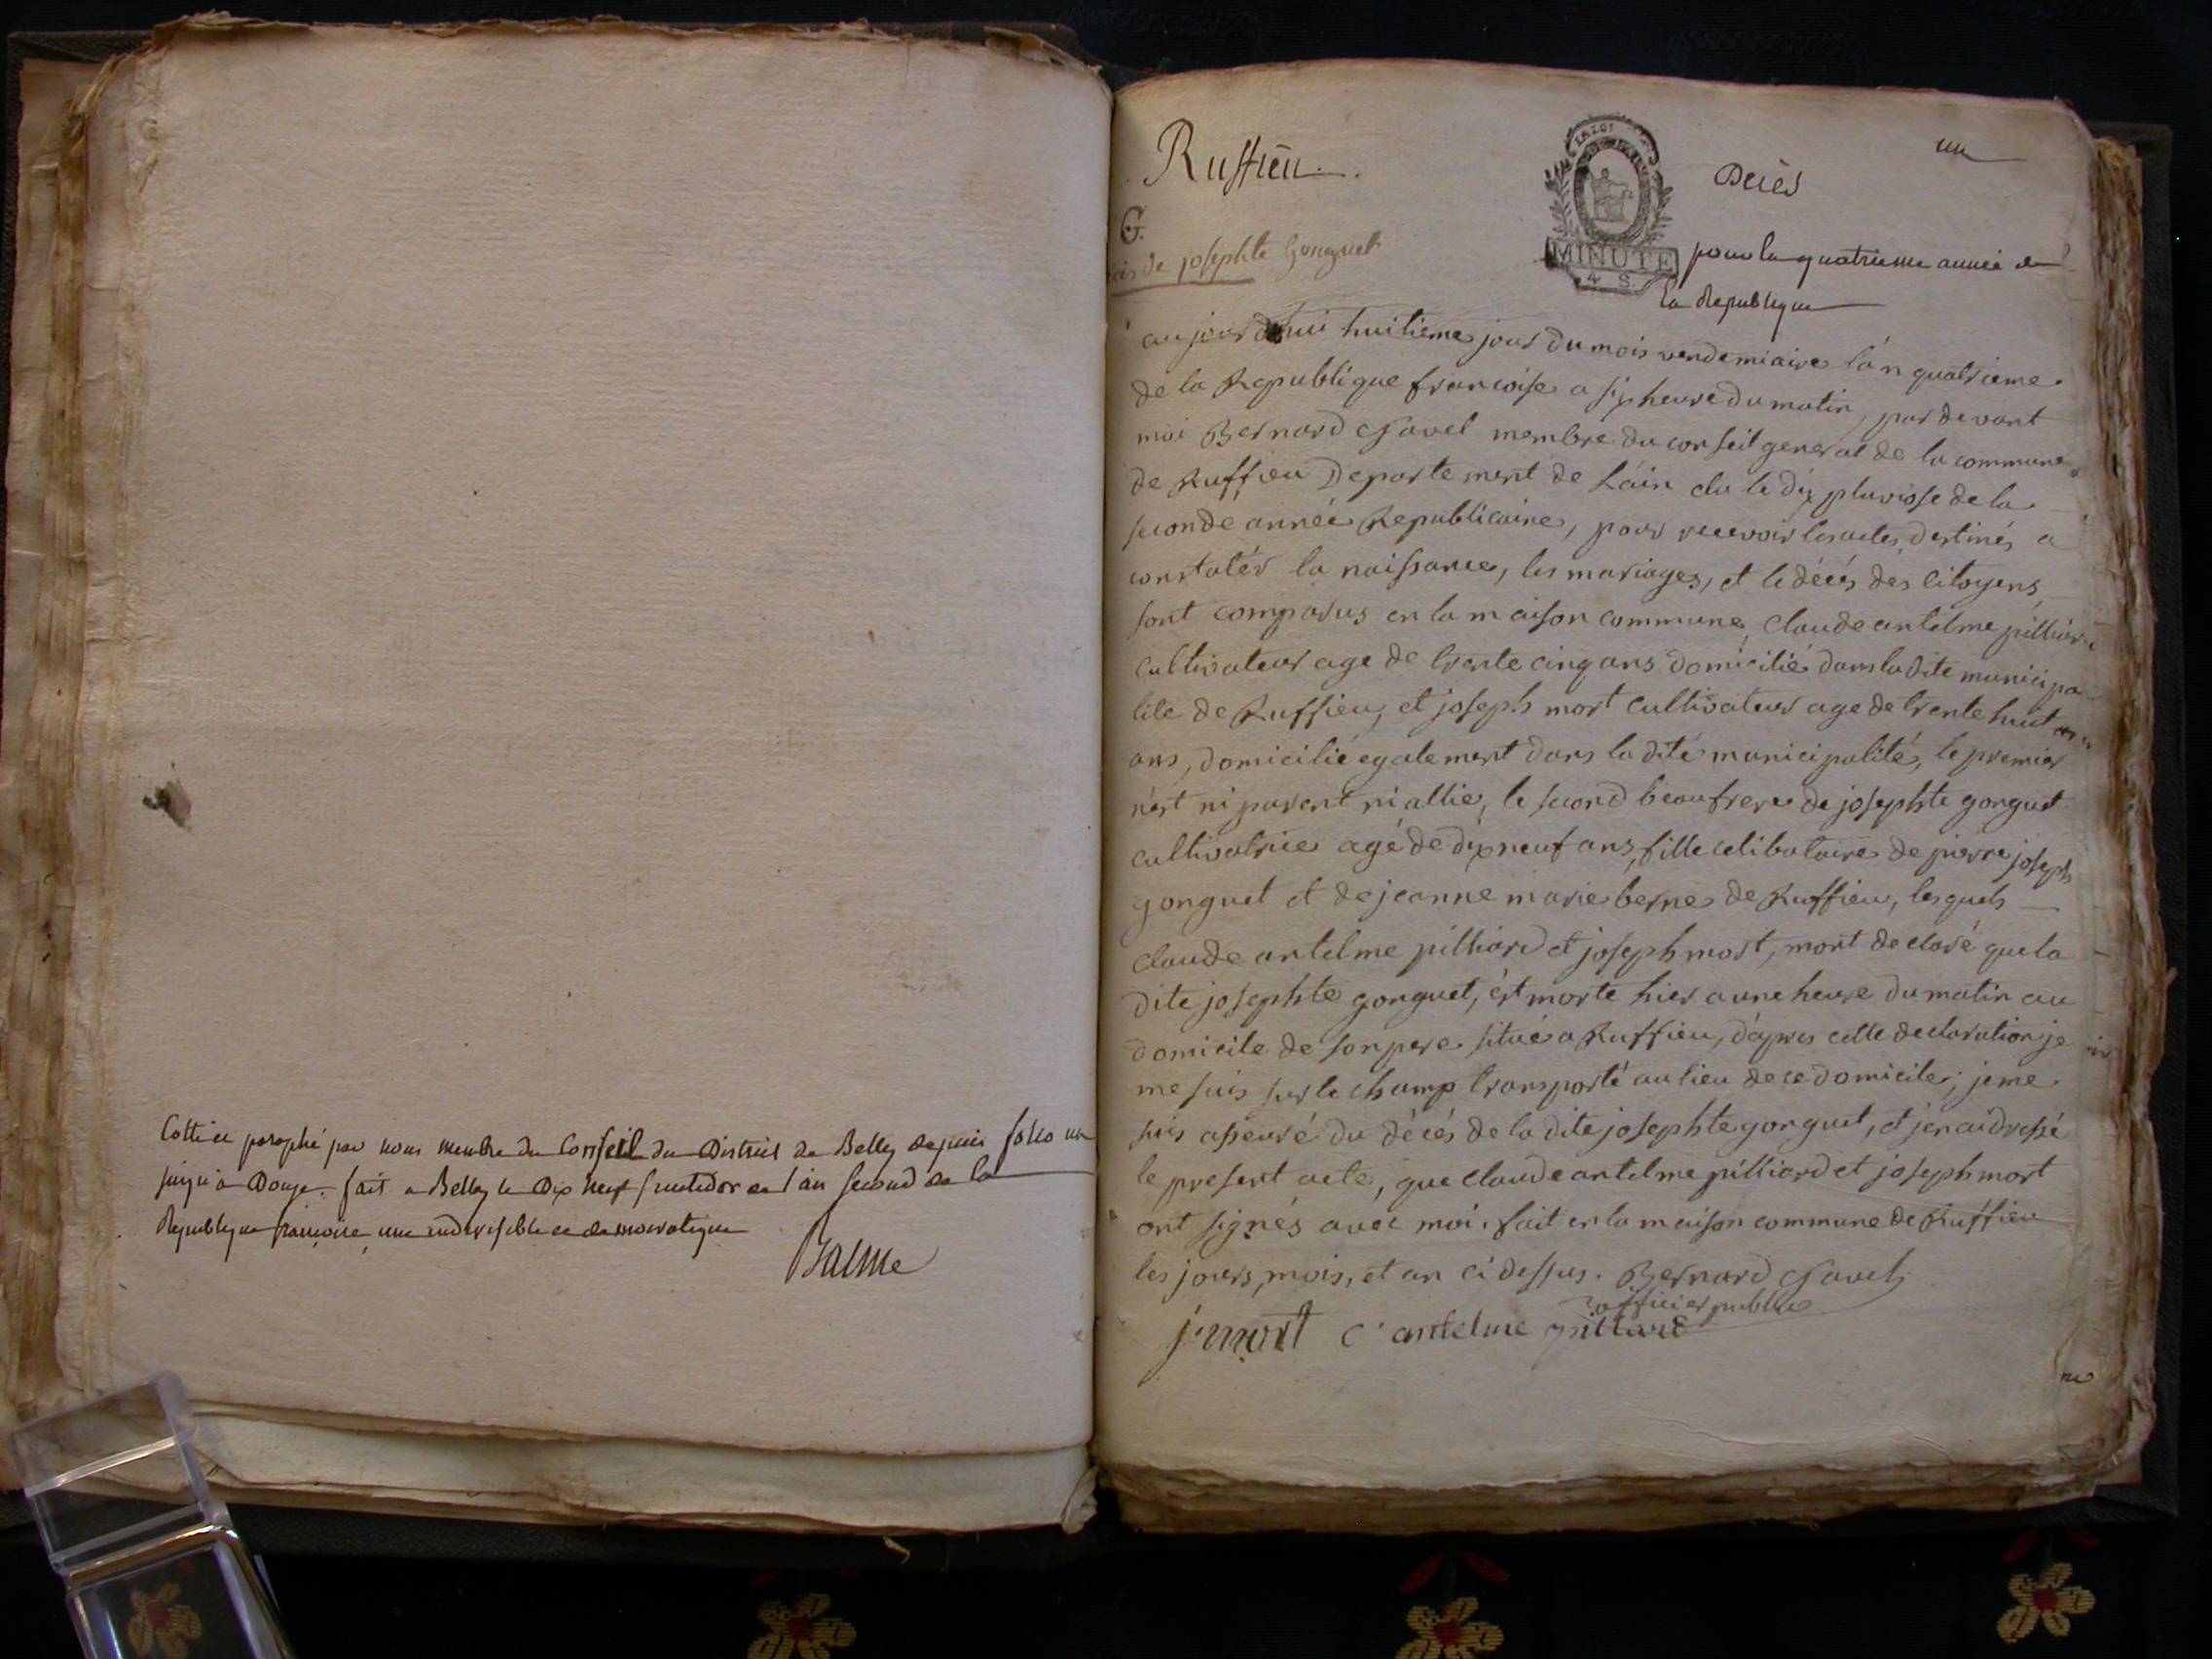 Cottié et paraphé par nous membre du Conseil du District de Belley depuis folio un
jusqu'à Douze. fait a Belley le Dix neuf fructidor en l'an second de la
Republique francoise, une indivisible et democratique
Balme
Ruffieu.
un
Décès
G.
de josephte gonguet
MINUTE
4 S.
pour la quatrieme année de
la Republique
aujourdhui huitieme jour du mois vendemiaire l'an quatrieme
de la Republique francoise a six heure du matin, par devant
moi Bernard Gavel membre du conseil general de la commune
de Ruffieu Departement de L'ain élu le dix pluviose de la
seconde année Republicaine, pour recevoir les actes destinés a
constatér la naissance, les mariages, et le décés des Citoyens,
sont comparus en la maison commune, Claude antelme pilliard
cultivateur age de trente cinq ans domicilié dans la dite municipa
lité de Ruffieu, et joseph mort cultivateur age de trente huit
ans, domicilié egalement dans la dite municipalité, le premier
n'est ni parent ni allie, le second beaufrere de josephte gonguet
cultivatrice agé de dix neuf ans, fille celibataire de pierre joseph
gonguet et de jeanne marie berne de Ruffieu, lesquels
Claude antelme pilliard et joseph mort, mont declaré que la
dite josephte gonguet, est morte hier a une heure du matin au
domicile de son pere situé a Ruffieu, d'apres cette declaration je
me suis sur le champ transporté au lieu de ce domicile; je me
suis asseuré du décés de la dite josephte gonguet, et j'en ai dressé
le present acte, que Claude antelme pilliard et joseph mort
ont signés avec moi. fait en la maison commune de Ruffieu
les jours, mois, et an ci dessus. Bernard Gavel
officier public
j. mort C. antelme pilliard